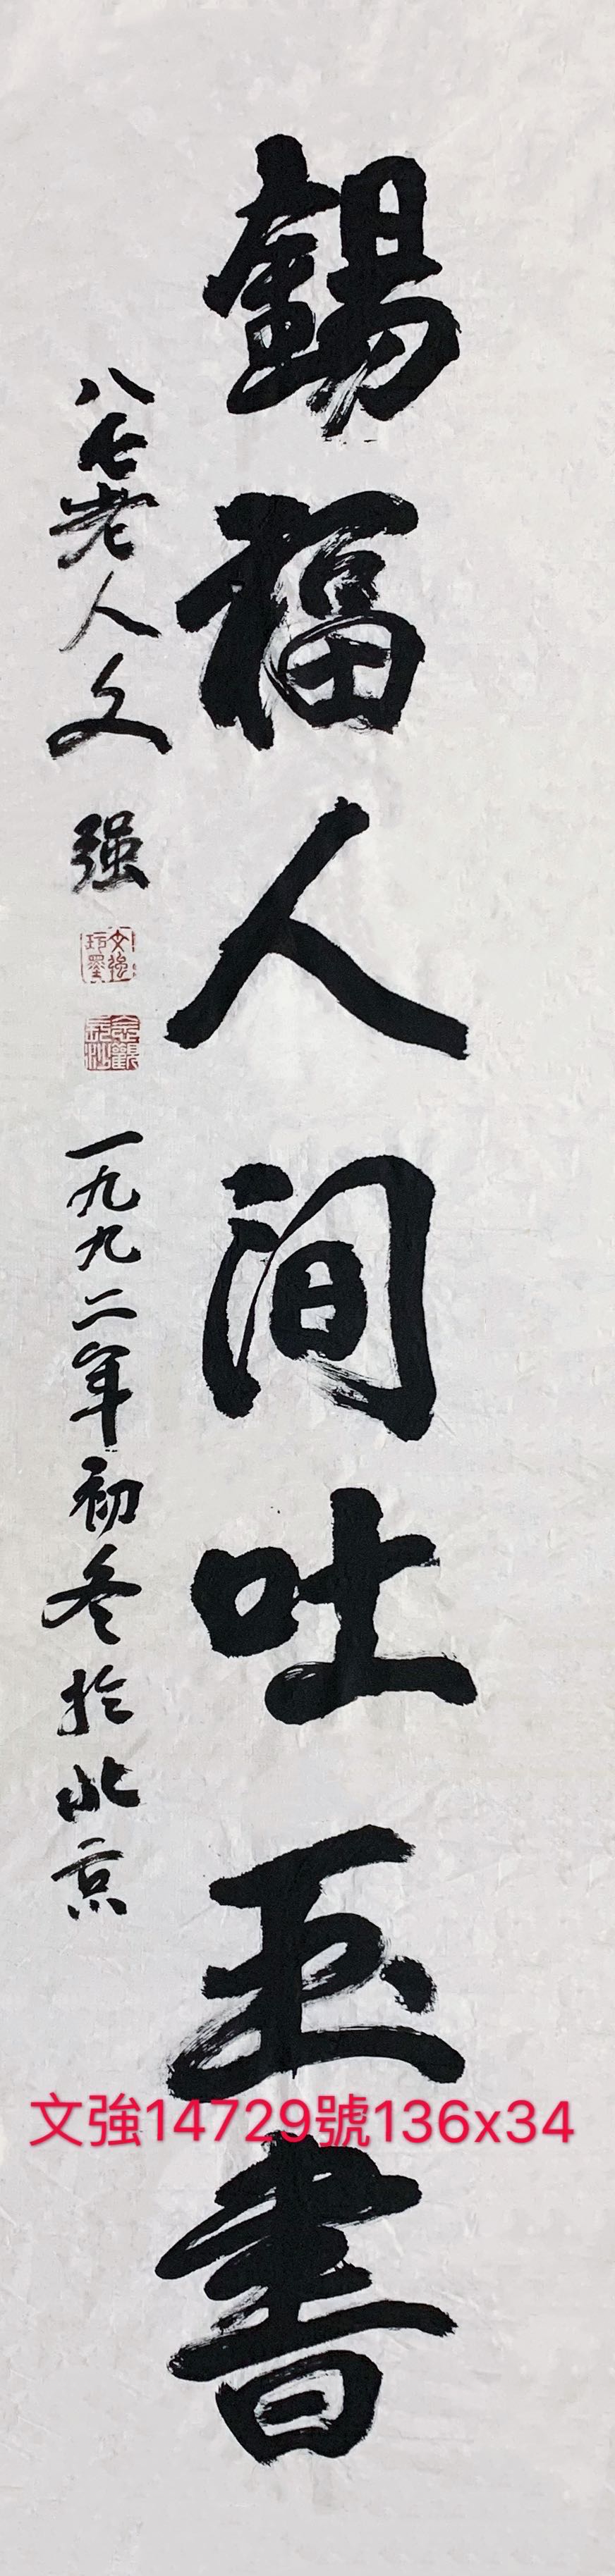 錫福人間吐玉書
八五老人文强
文強
一九九二年初冬於北京
文強14729號136x34